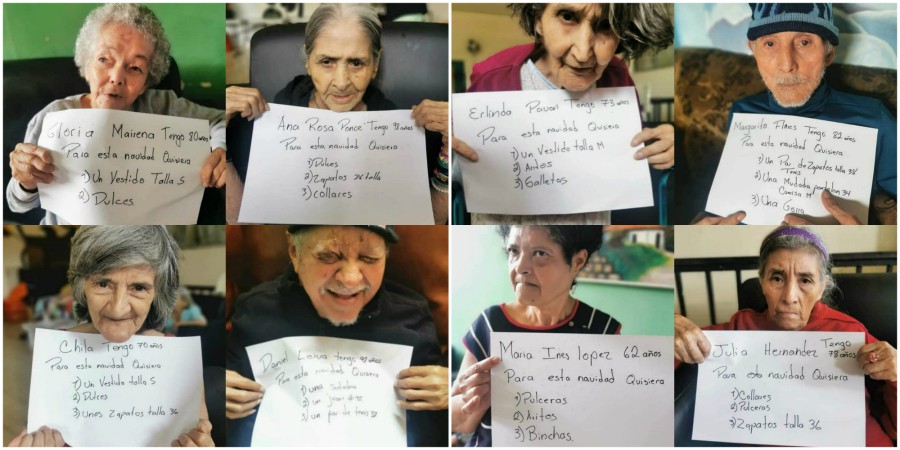 Gloria Mairena Tengo 80 años
Para esta navidad Quisiera
1) Un Vestido Talla S
2) Dulces
Ana Rosa Ponce Tengo 98 años
Para esta navidad Quisiera
1) Dulces
2) Zapatos talla
3) collares
Erlinda Pavon Tengo 73 años
Para esta navidad Quisiera
1) Un Vestido talla M
2) Aritos
3) Galletas
Margarito Flores Tengo 82 años
Para esta navidad Quisiera
1) Un Par de Zapatos talla 38
Tenis
2) Una Mudada pantalon 34
Camisa M
3) Una Gorra
Chila Tengo 70 años
Para esta navidad Quisiera
1) Un Vestido talla S
2) Dulces
3) Unos Zapatos talla 36
Daniel Leiva tengo años
Para esta navidad Quisiera
1) una
2) un jean
3) un par de tenis
Maria Ines lopez 62 años
Para esta navidad Quisiera
1) Pulceras
2) Aritos
3) Binchas
Julia Hernandez Tengo
78 años
Para esta navidad Quisiera
1) Collares
2) Pulceras
3) Zapatos talla 36